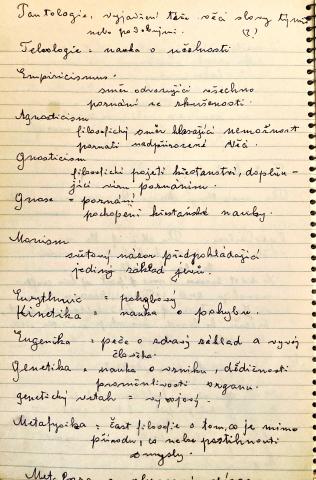 Tautologie, vyjadření téže věci slovy týmiž
nebo podobnými. (?)
Teleologie = nauka o účelnosti
Empiricismus:
směr odvozující všechno
poznání ze zkušenosti.
Agnosticism
filosofický směr hlásající nemožnost
poznati nadpřirozené věci.
Gnosticism
filosofické pojetí křesťanství, doplňu-
jící víru poznáním.
Gnose = poznání
pochopení křesťanské nauky.
Monism
světový názor předpokládající
jediný základ jevů.
Eurythmic = pohybový
Kinetika = nauka o pohybu.
Eugenika = péče o zdravý základ a vývoj
člověka.
Genetika = nauka o vzniku, dědičnosti
proměnlivosti organu.
genetický vztah = vývojový.
Metafysika = část filosofie o tom, co je mimo
přírodu, co nelze postihnouti
smysly.